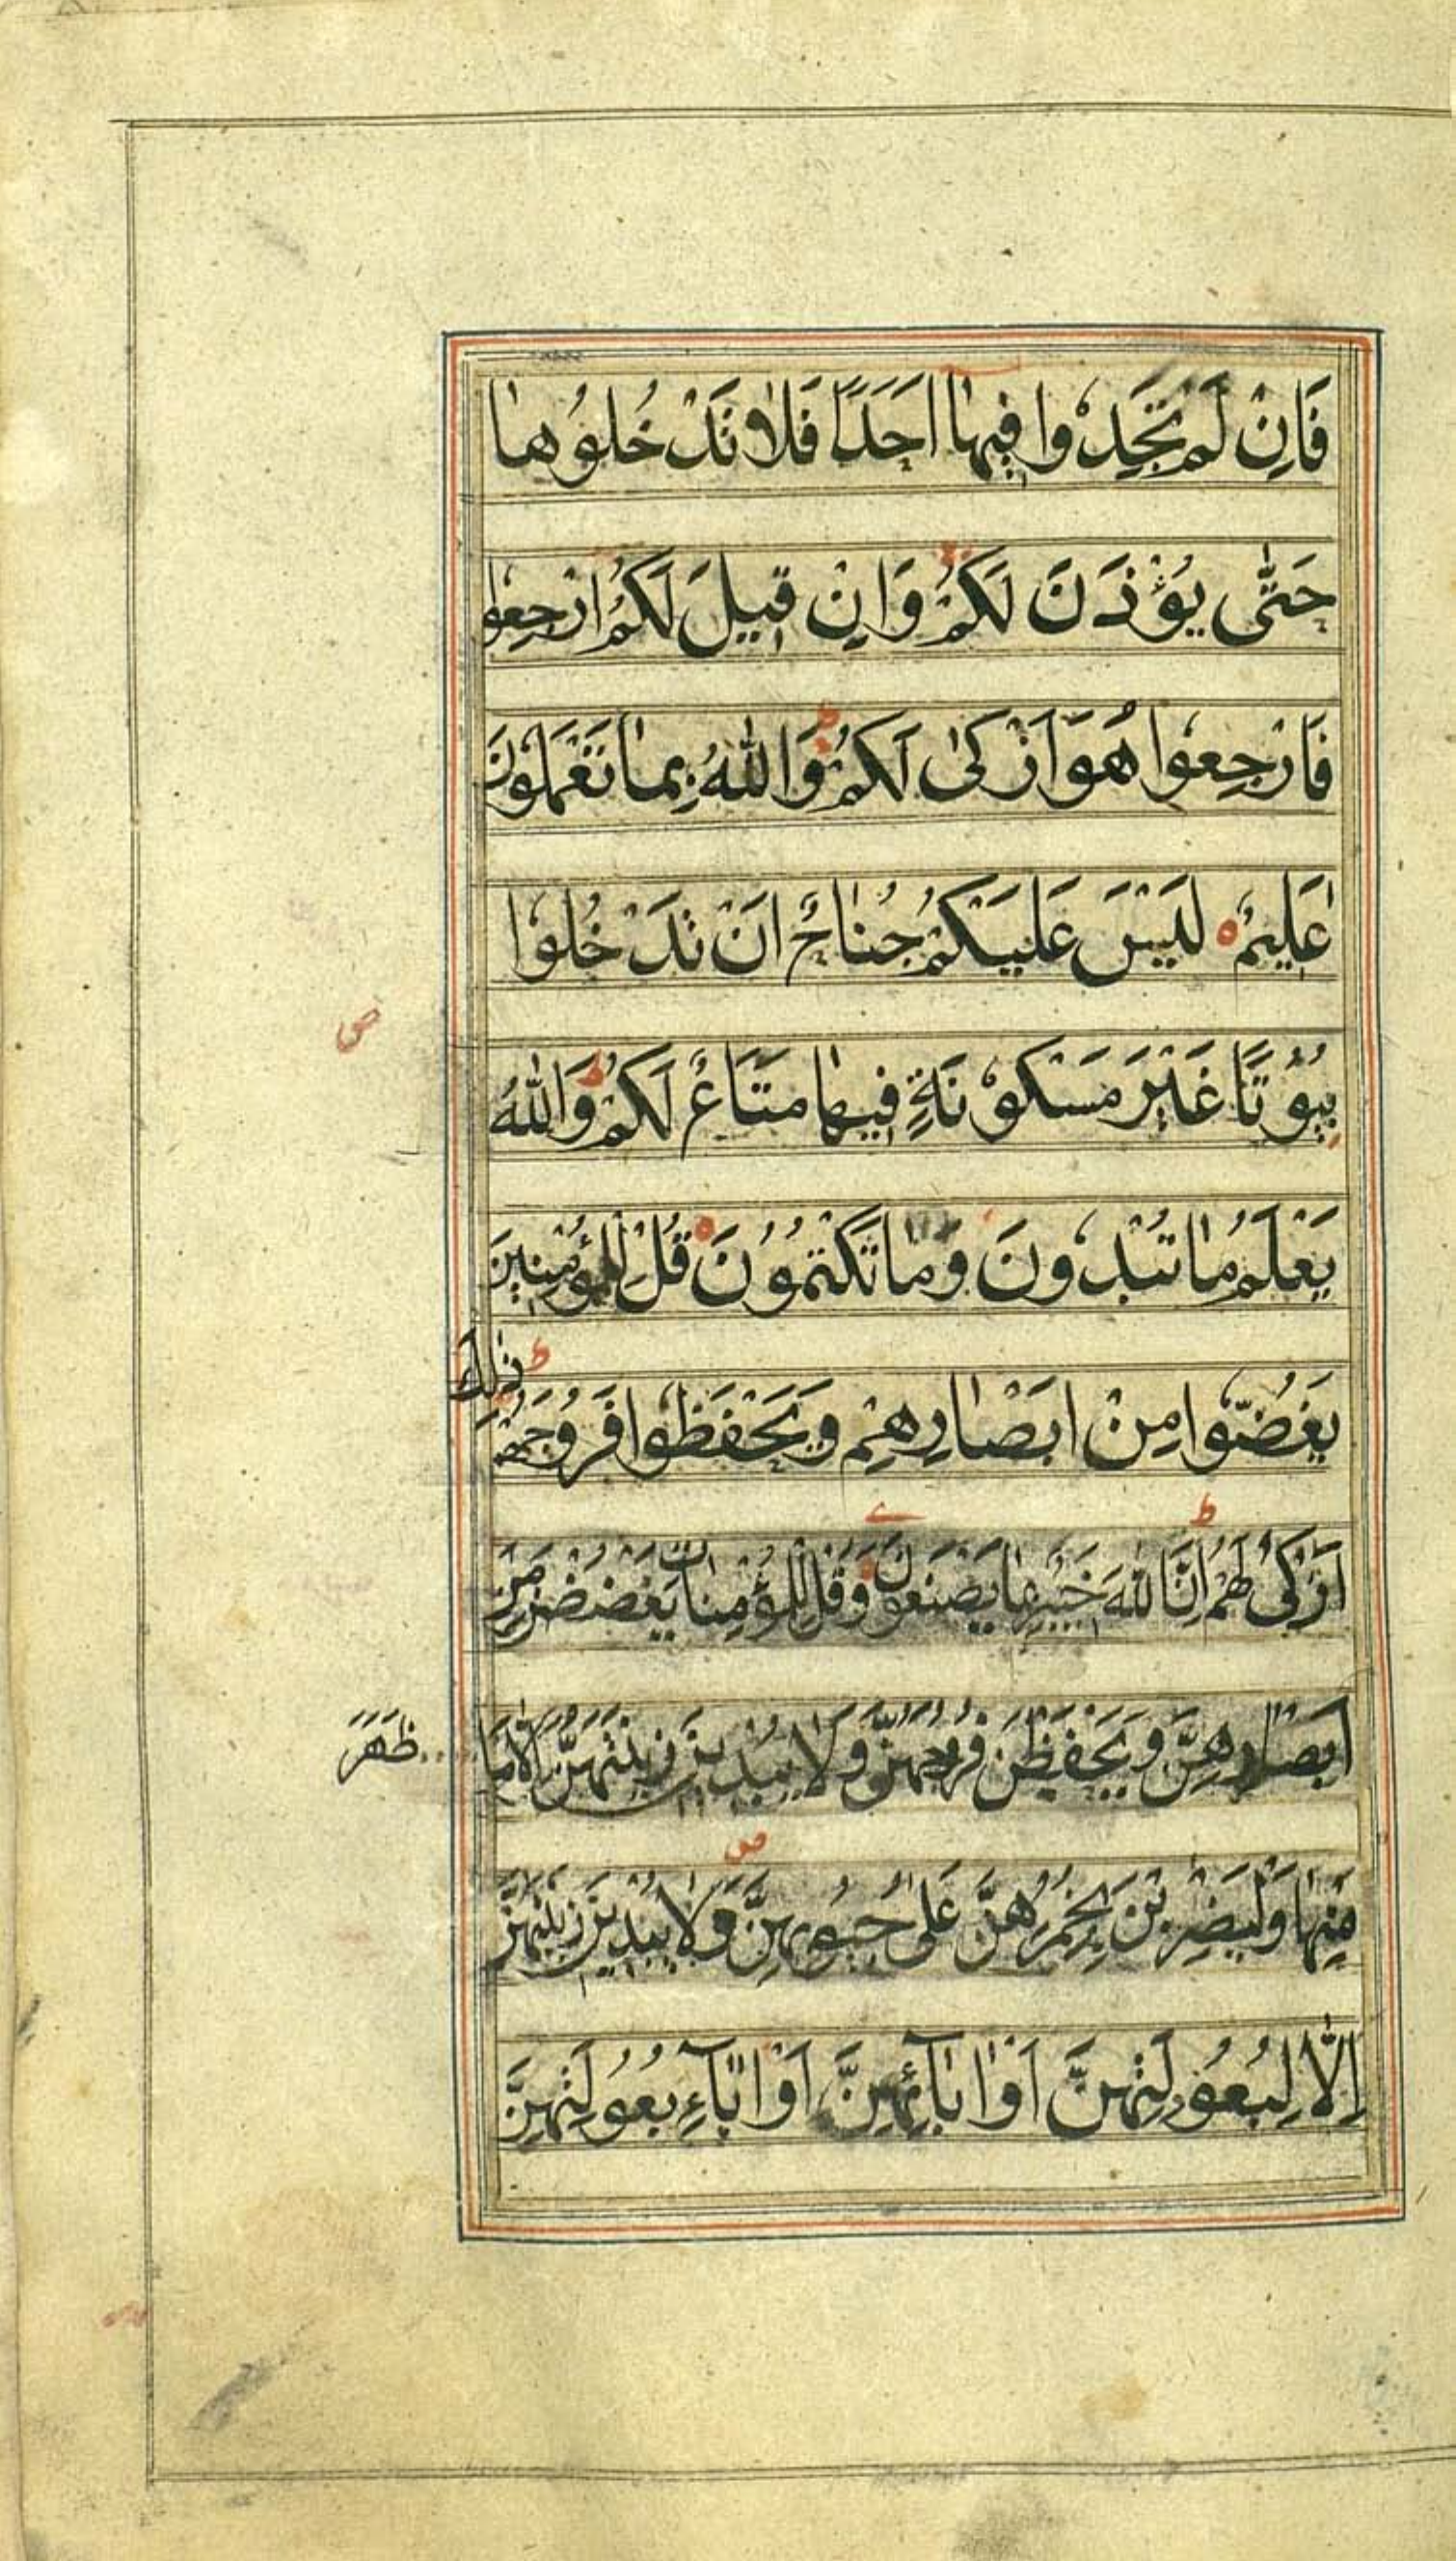 فَاِنْ لَمْ تَجِدُوا فِيهٰا اَحَدًا فَلٰا تَدْخُلُوهٰا
حَتّٰى يُؤْذَنَ لَكُمْ وَاِنْ قِيلَ لَكُمُ ارْجِعُوا
فَارْجِعُوا هُوَ اَزْكٰى لَكُمْ ط وَاللّٰهُ بِمٰا تَعْمَلُونَ
عَلِيمٌ ه لَيْسَ عَلَيْكُمْ جُنٰاحٌ اَنْ تَدْخُلُوا
بُيُوتًا غَيْرَ مَسْكُونَةٍ فِيهٰا مَتَاعٌ لَكُمْ ط وَاللّٰهُ
يَعْلَمُ مٰا تُبْدُونَ وَمٰا تَكْتُمُونَ ه قُلْ لِلْمُؤْمِنِينَ
يَغُضُّوا مِنْ اَبْصٰارِهِمْ وَيَحْفَظُوا فُرُوجَهُمْ ط ذٰلِكَ
اَزْكٰى لَهُمْ ط اِنَّ اللّٰهَ خَبِيرٌ بِمٰا يَصْنَعُونَ ه وَقُلْ لِلْمُؤْمِنٰاتِ يَغْضُضْنَ مِنْ
اَبْصٰارِهِنَّ وَيَحْفَظْنَ فُرُوجَهُنَّ وَلٰا يُبْدِينَ زِينَتَهُنَّ اِلّٰا مٰا
ظَهَرَ
مِنْهٰا وَلْيَضْرِبْنَ بِخُمُرِهِنَّ عَلٰى جُيُوبِهِنَّ ص وَلٰا يُبْدِينَ زِينَتَهُنَّ
اِلّٰا لِبُعُولَتِهِنَّ اَوْ اٰبٰآئِهِنَّ اَوْ اٰبٰآءِ بُعُولَتِهِنَّ